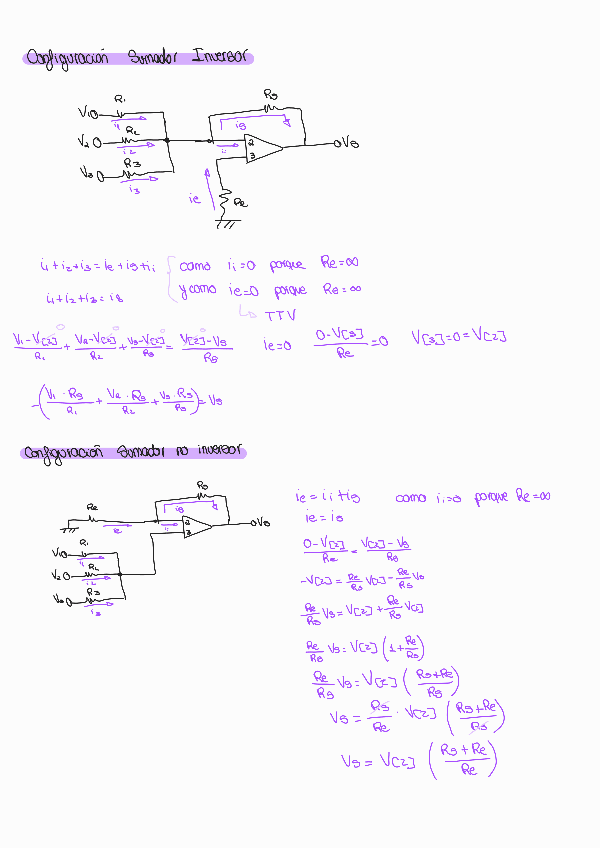 Configuración Sumador Inversor
R1
Rs
V1
i1
is
R2
V2
i2
ii
2
3
Vs
R3
V3
i3
ie
Re
i1+i2+i3=ie+is+ii
como ii=0 porque Re=∞
y como ie=0 porque Re=∞
i1+i2+i3=is
TTV
V1-V[2]/R1 + V2-V[2]/R2 + V3-V[2]/R3 = V[2]-Vs/Rs
ie=0
0-V[3]/Re = 0
V[3]=0=V[2]
-(V1·Rs/R1 + V2·Rs/R2 + V3·Rs/R3) = Vs
Configuración Sumador no inversor
Rs
Re
is
ie
ii
2
3
Vs
R1
V1
i1
R2
V2
i2
R3
V3
i3
ie=ii+is como ii=0 porque Re=∞
ie=is
0-V[2]/Re = V[2]-Vs/Rs
-V[2]=Re/Rs V[2]-Re/Rs Vs
Re/Rs Vs=V[2]+Re/Rs V[2]
Re/Rs Vs=V[2](1+Re/Rs)
Re/Rs Vs=V[2](Rs+Re/Rs)
Vs=Rs/Re·V[2](Rs+Re/Rs)
Vs=V[2](Rs+Re/Re)